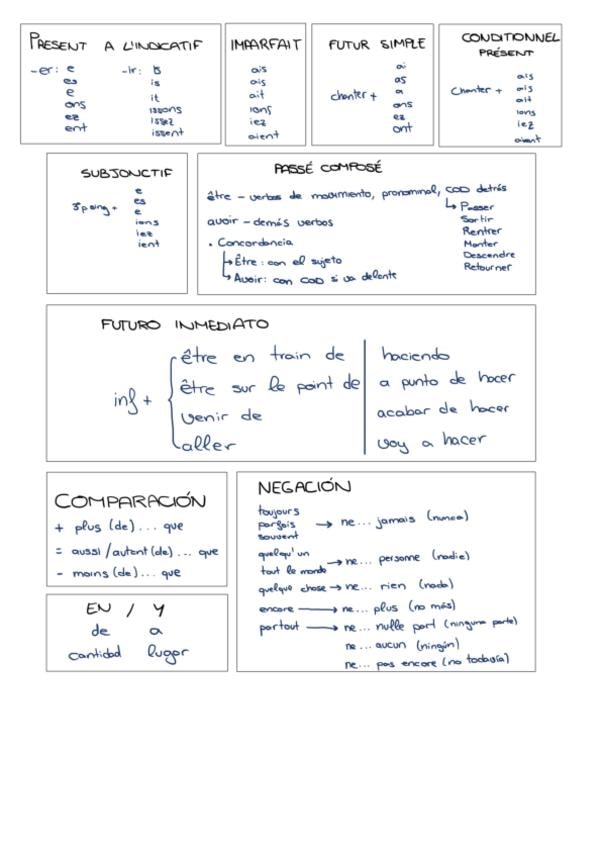 PRESENT A L'INDICATIF
-er: e -ir: is
es is
e it
ons issons
ez issez
ent issent
IMPARFAIT
ais
ais
ait
ions
iez
aient
FUTUR SIMPLE
ai
as
chanter + a
ons
ez
ont
CONDITIONNEL
PRÉSENT
ais
Chanter + ais
ait
ions
iez
aient
SUBJONCTIF
e
es
+ e
ions
iez
ient
PASSÉ COMPOSÉ
être – verbos de movimiento, pronominal, COD detrás
↳ Passer
avoir – demás verbos
Sortir
Rentrer
Monter
Descendre
Retourner
• Concordancia
↳ Être: con el sujeto
↳ Avoir: con COD si va delante
FUTURO INMEDIATO
inf +
être en train de haciendo
être sur le point de a punto de hacer
venir de acabar de hacer
aller voy a hacer
COMPARACIÓN
+ plus (de) ... que
= aussi /autant (de) ... que
- moins (de) ... que
EN / Y
de a
cantidad lugar
NEGACIÓN
toujours
parfois → ne... jamais (nunca)
souvent
quelqu'un
tout le monde → ne... personne (nadie)
quelque chose → ne... rien (nada)
encore → ne... plus (no más)
partout → ne... nulle part (ninguna parte)
ne... aucun (ningún)
ne... pas encore (no todavía)